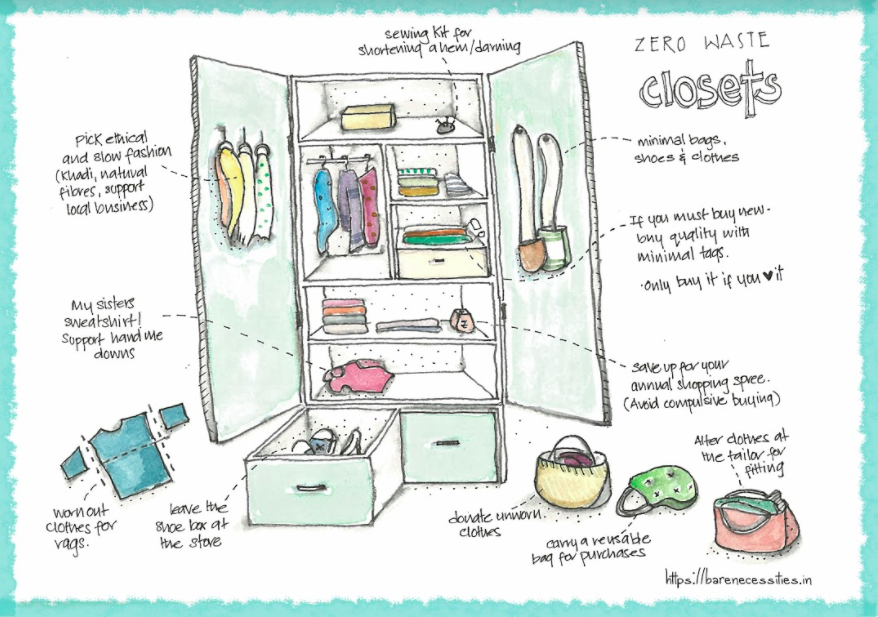 ZERO WASTE
closets
sewing kit for
shortening a hem/darning
Pick ethical
and slow fashion
(Khadi, natural
fibres, support
local business)
minimal bags,
shoes & clothes
If you must buy new -
buy quality with
minimal tags.
·only buy it if you ♥ it
My sisters
sweatshirt!
Support hand me
downs
save up for your
annual shopping spree.
(Avoid compulsive buying)
Alter clothes at
the tailor for
fitting
worn out
clothes for
rags.
leave the
shoe box at
the store
donate unworn
clothes
carry a reusable
bag for purchases
https://barenecessities.in